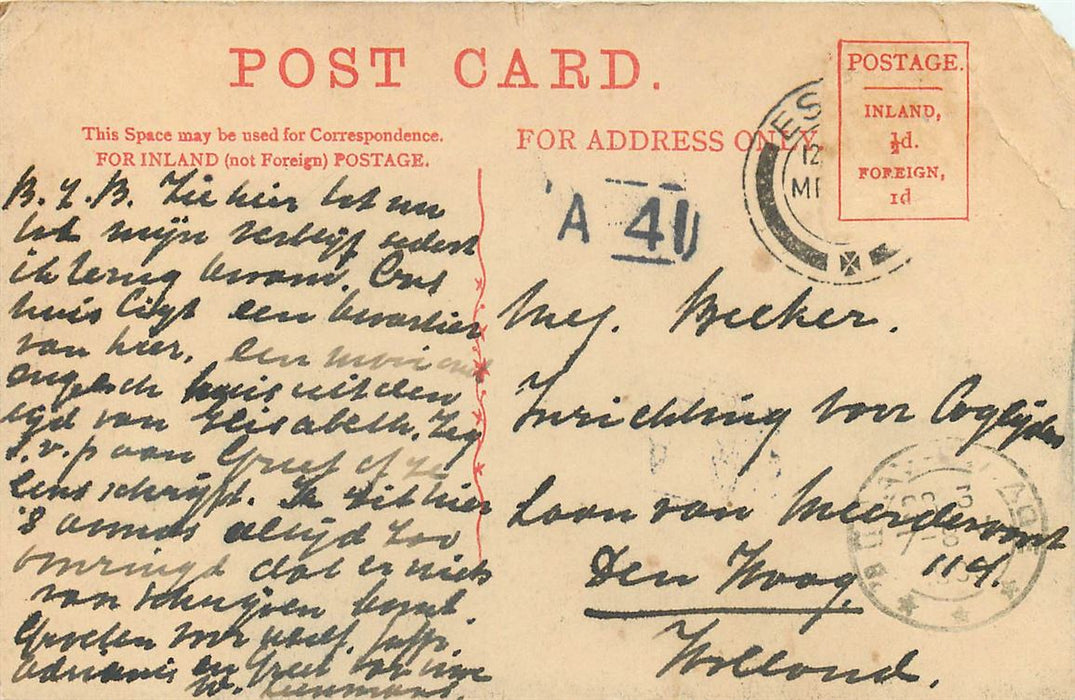 POST CARD.
This Space may be used for Correspondence.
FOR INLAND (not Foreign) POSTAGE.
FOR ADDRESS ONLY
POSTAGE.
INLAND,
½d.
FOREIGN,
1d
ES
12
A 41
B. Zie hier het
het mijn verblijf
ik terug kwam. Ons
huis ligt een kwartier
van hier, een mooi oud
engelsch huis uit den
tijd van Elisabeth. Zeg
s.v.p aan Greet of ze
eens schrijft. Ik zit hier
's avonds altijd zoo
omringd dat er niets
van schrijven komt.
Groeten voor uzelf,
en Greet van uwe
W.
Mej. Becker.
Inrichting voor Ooglijders
Laan van Meerdervoort
114.
Den Haag.
Holland.